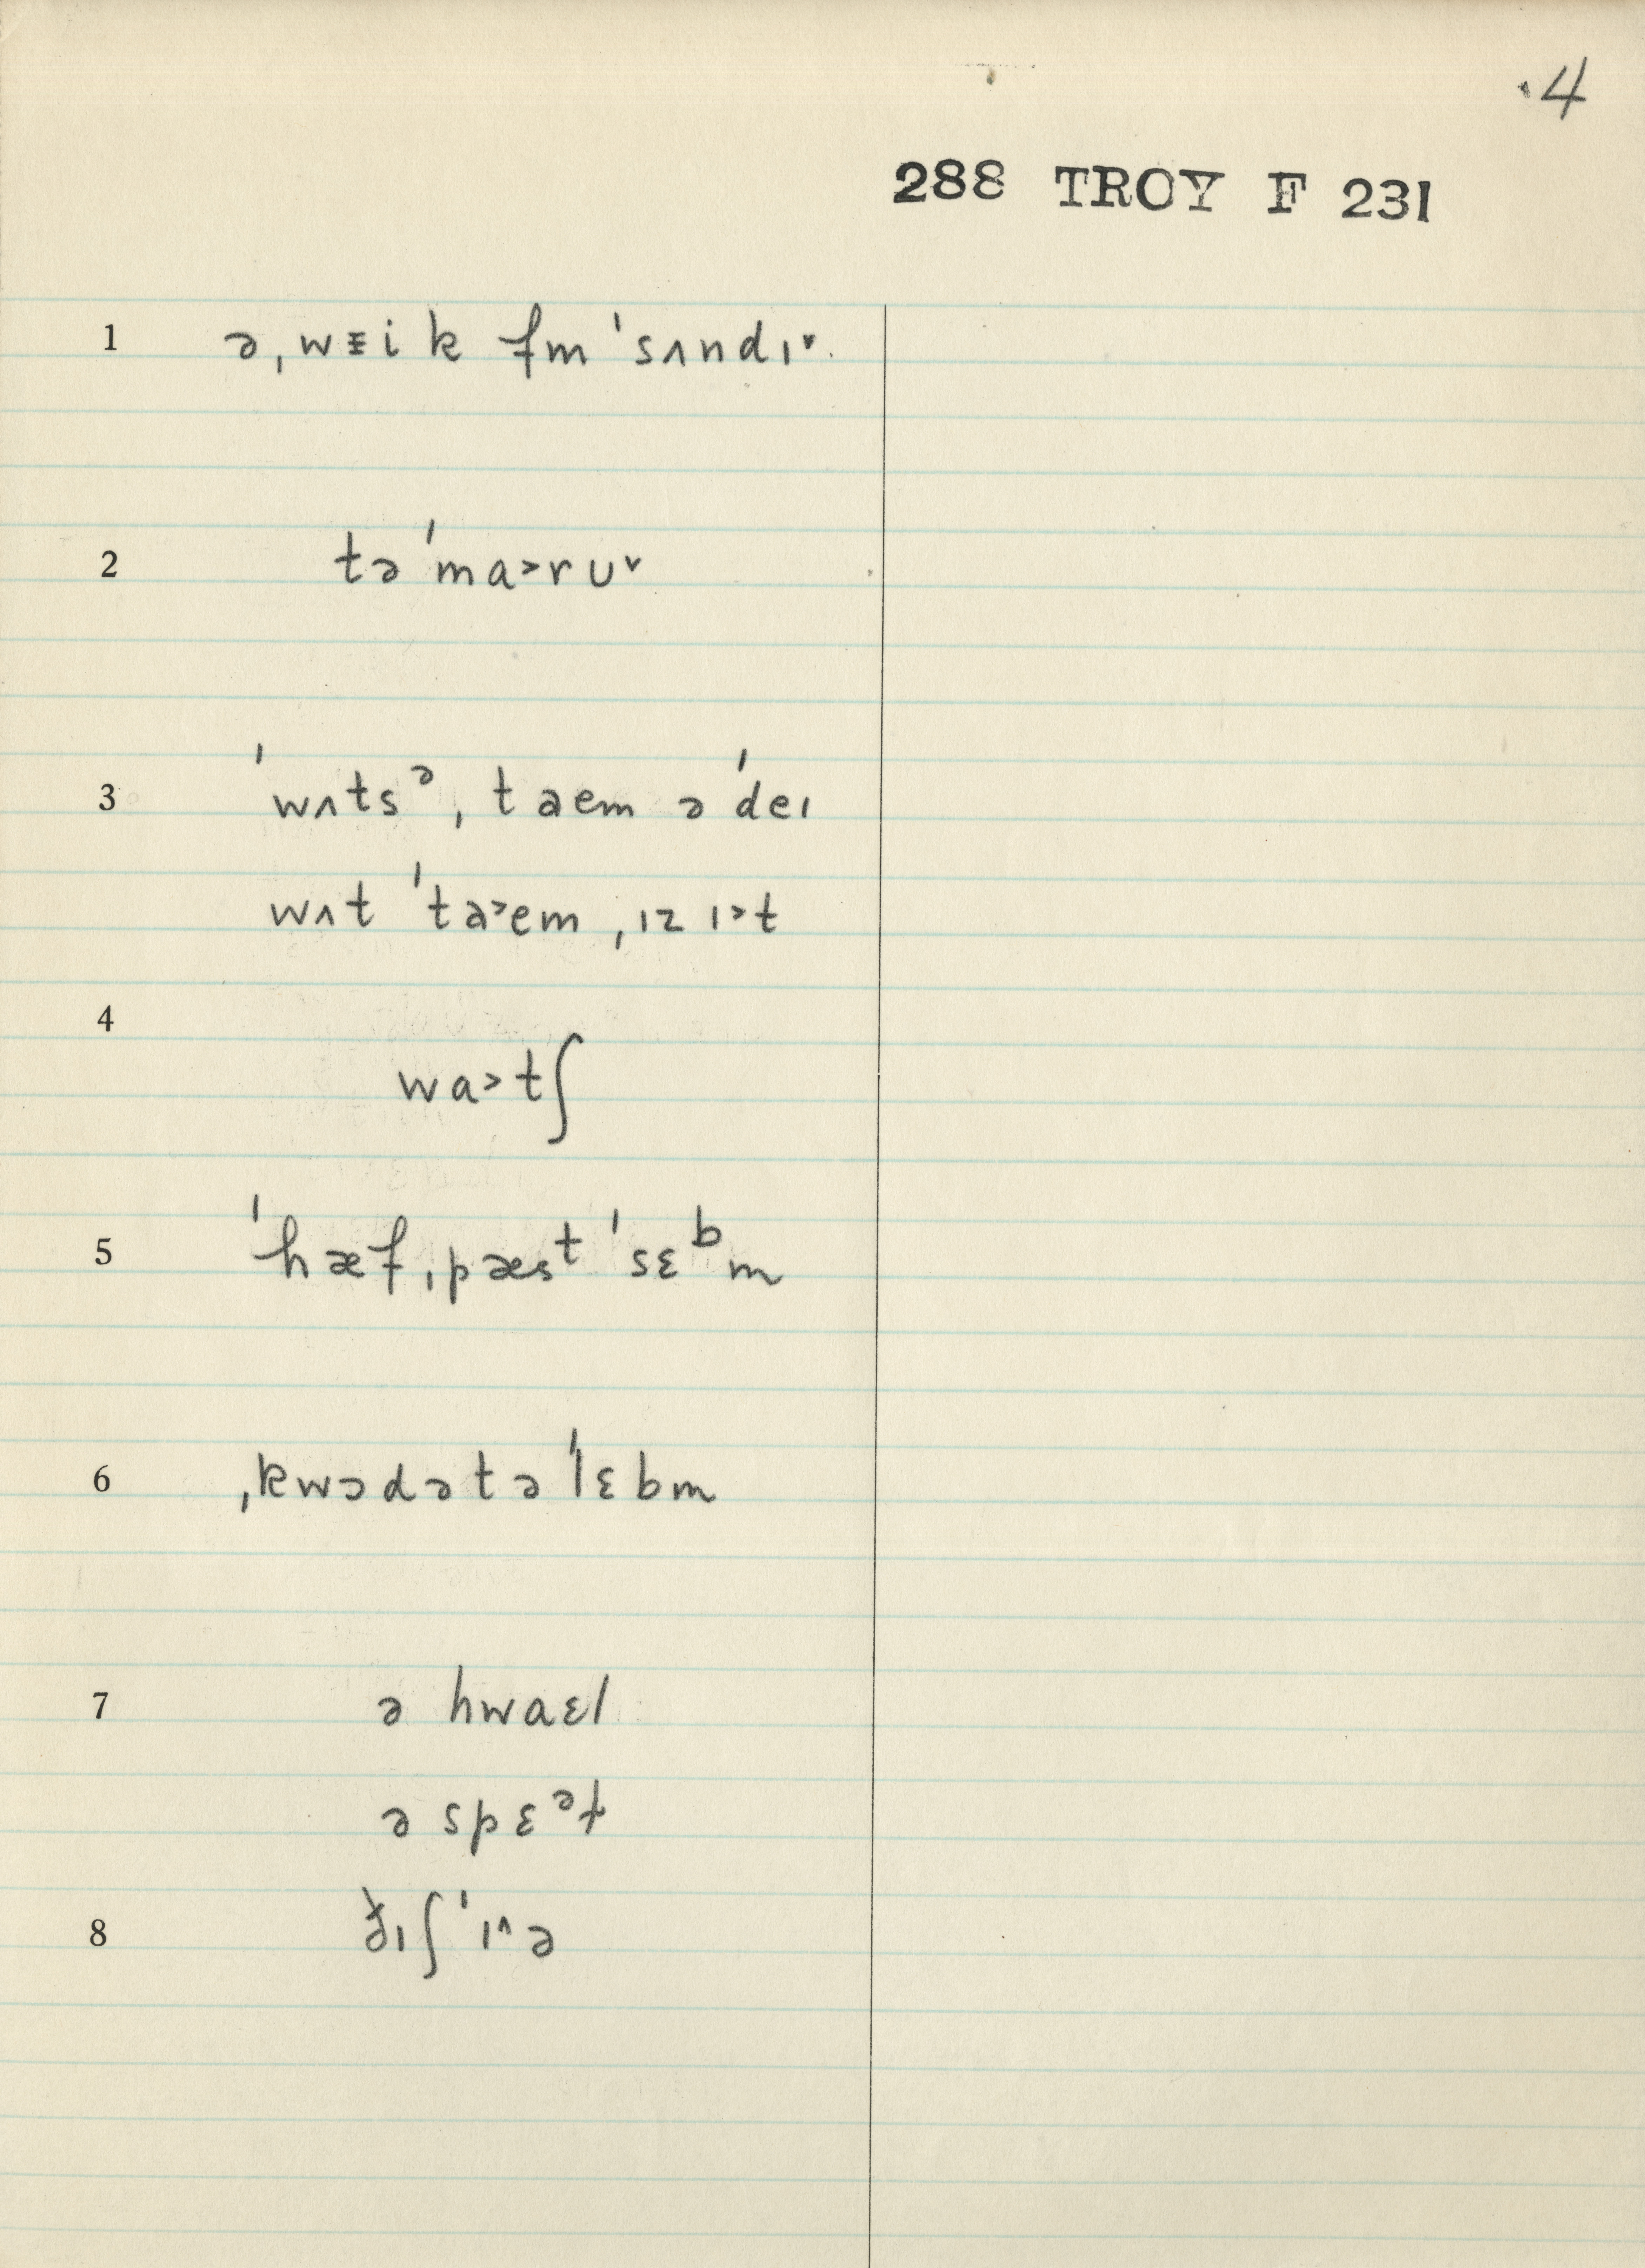 .4
288 TROY F 231
1 ə ˌwᵻik fm ˈsʌndɪ˅.
2 təˈma˃rʊ˅
3 ˈwʌtsᵊ ˌtaem ə ˈdeɪ
wʌt ˈta˃em ˌɪz ɪ˃t
4 wa˃tʃ
5 ˈhæf ˌpæsᵗ ˈsɛᵇm
6 ˌkwɔdətə ˈlɛbm
7 ə hwaɛl
ə spɛᵊɫ
8 ðɪʃ ˈɪ˄ə